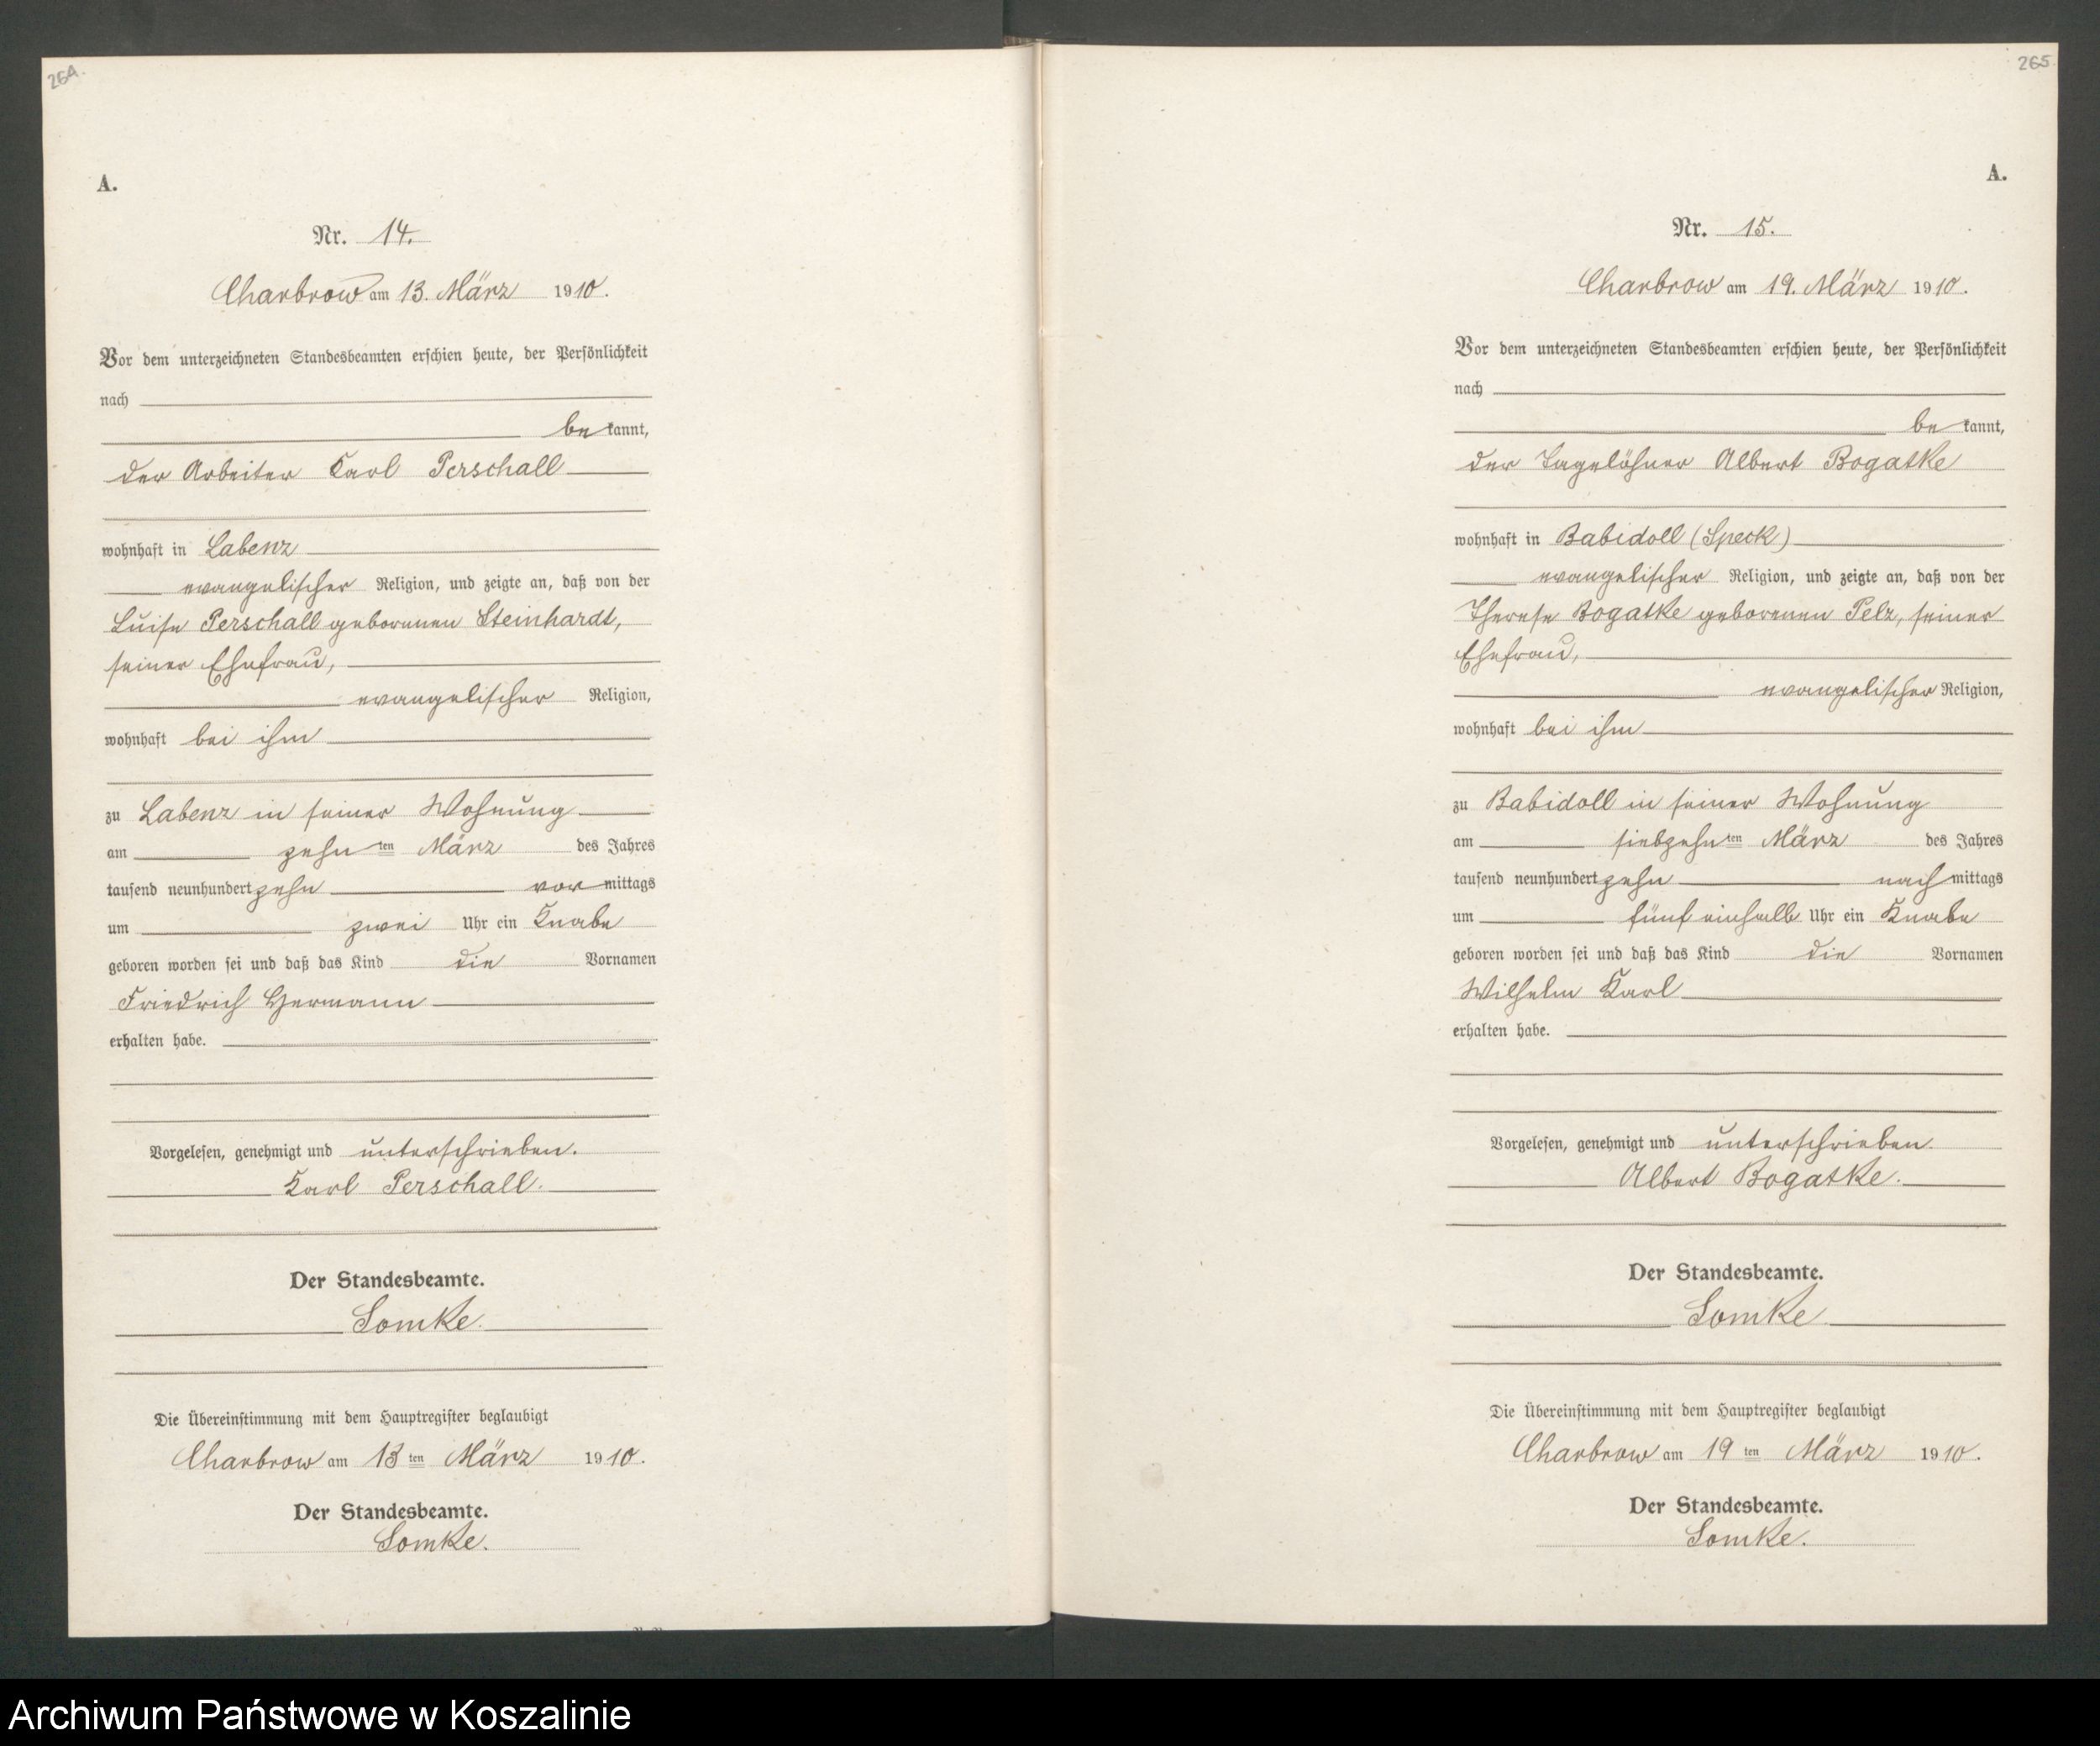 264.
A.
Nr. 14.
Charbrow am 13. März 1910.
Vor dem unterzeichneten Standesbeamten erschien heute, der Persönlichkeit
nach
be kannt,
der Arbeiter Karl Perschall
wohnhaft in Labenz
evangelischer Religion, und zeigte an, daß von der
Luise Perschall geborenen Steinhardt,
seiner Ehefrau,
evangelischer Religion,
wohnhaft bei ihm
zu Labenz in seiner Wohnung
am zehn ten März des Jahres
tausend neunhundert zehn vor mittags
um zwei Uhr ein Knabe
geboren worden sei und daß das Kind die Vornamen
Friedrich Hermann
erhalten habe.
Vorgelesen, genehmigt und unterschrieben.
Karl Perschall.
Der Standesbeamte.
Somke.
Die Übereinstimmung mit dem Hauptregister beglaubigt
Charbrow am 13 ten März 1910.
Der Standesbeamte.
Somke.
265
A.
Nr. 15.
Charbrow am 19. März 1910.
Vor dem unterzeichneten Standesbeamten erschien heute, der Persönlichkeit
nach
be kannt,
der Tagelöhner Albert Bogatke
wohnhaft in Babidoll (Speck)
evangelischer Religion, und zeigte an, daß von der
Therese Bogatke geborenen Pelz, seiner
Ehefrau,
evangelischer Religion,
wohnhaft bei ihm
zu Babidoll in seiner Wohnung
am siebzehn ten März des Jahres
tausend neunhundert zehn nach mittags
um fünf einhalb Uhr ein Knabe
geboren worden sei und daß das Kind die Vornamen
Wilhelm Karl
erhalten habe.
Vorgelesen, genehmigt und unterschrieben.
Albert Bogatke.
Der Standesbeamte.
Somke
Die Übereinstimmung mit dem Hauptregister beglaubigt
Charbrow am 19 ten März 1910.
Der Standesbeamte.
Somke.
Archiwum Państwowe w Koszalinie